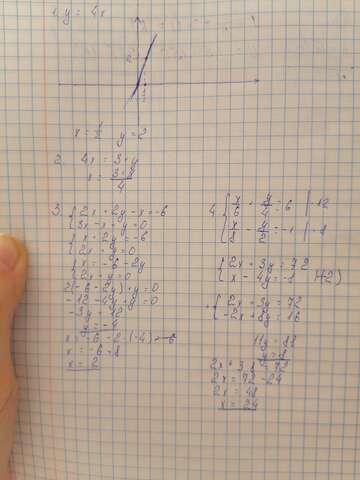 1. y = 4x
x = 1/2   y = 2
2. 4x = 3+y
x = (3+y)/4
3. { 2x + 2y - x = -6
3x - x + y = 0
{ x + 2y = -6
2x + y = 0
{ x = -6 - 2y
2x + y = 0
2(-6 - 2y) + y = 0
-12 - 4y + y = 0
-3y = 12
y = -4
x = -6 - 2·(-4) = -6
x = -6 + 8
x = 2
4. { x/6 + y/4 = 6 | ·12
y/2 = -1 | ·8
{ 2x + 3y = 72
x - 4y = -8 |·(-2)
+ { 2x + 3y = 72
-2x + 8y = 16
11y = 88
y = 8
2x + 3·8 = 72
2x = 72 - 24
2x = 48
x = 24